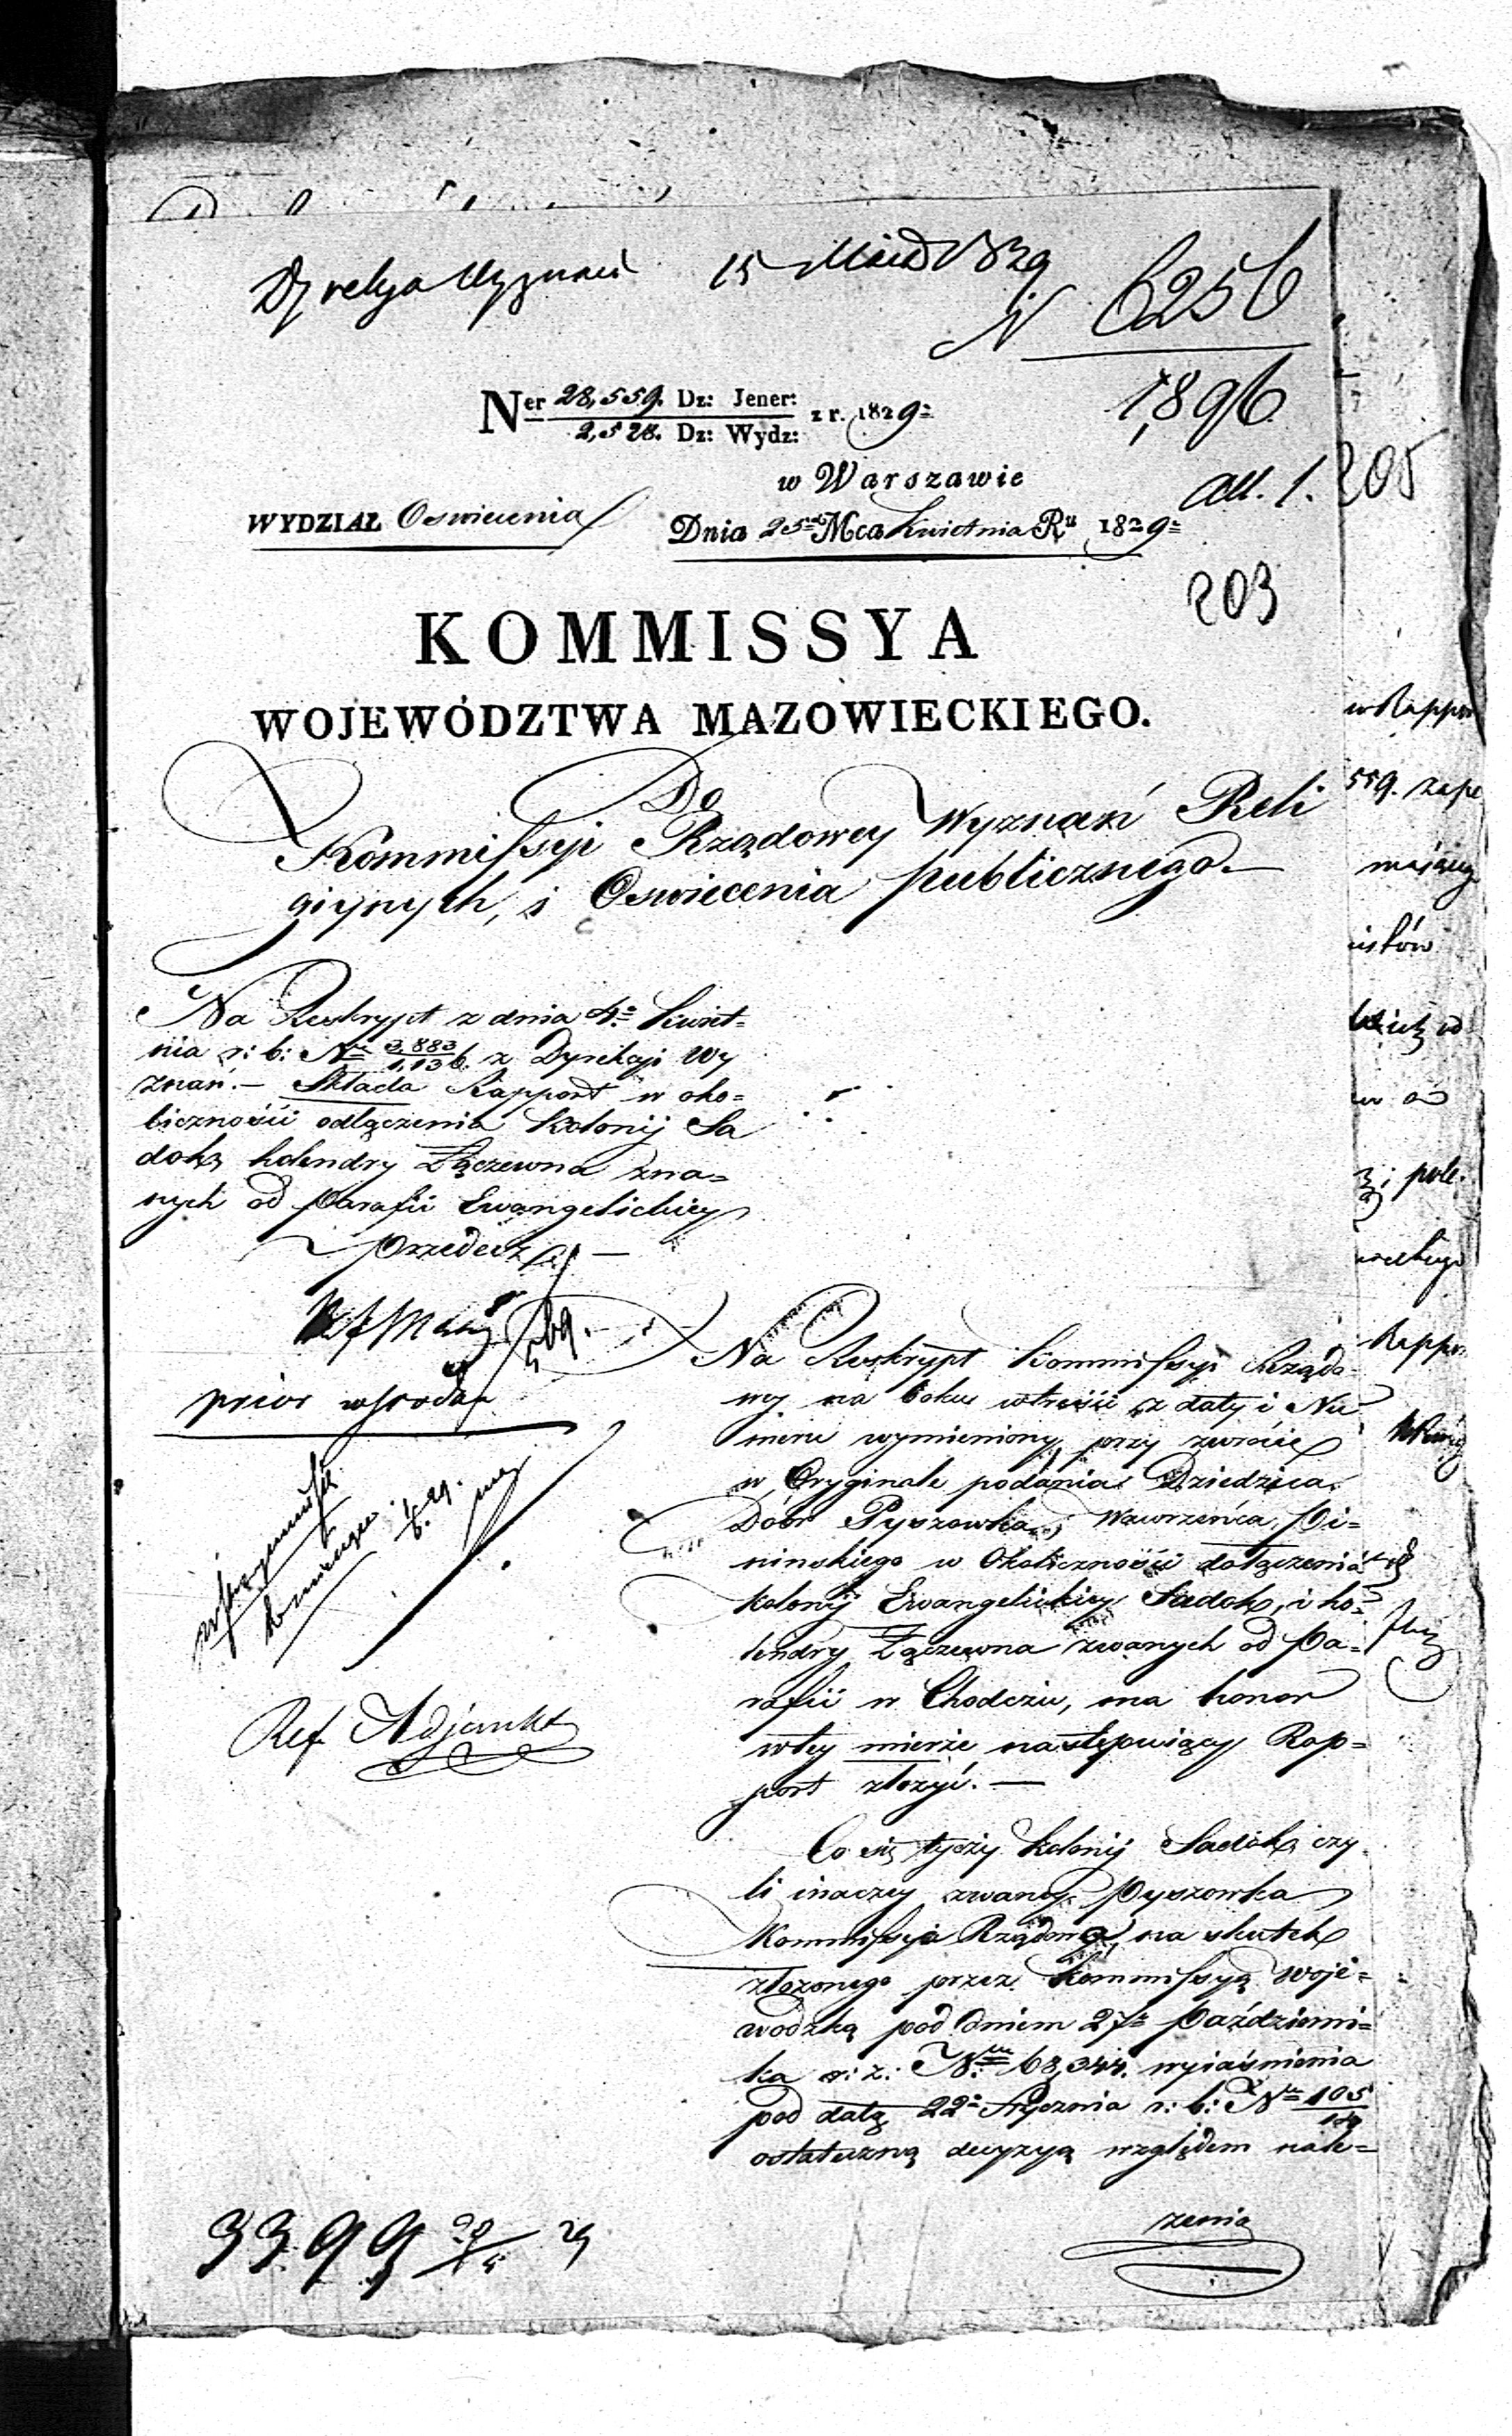 Dyrekcya Wyznań 15 Maia 1829
N 6256
1,896
Ner 28,559. Dz: Jener:
2,528. Dz: Wydz: z r. 1829=
w Warszawie
all. 1.
205
WYDZIAŁ Oswiecenia
Dnia 25 Mca Kwietnia Ru 1829=
203
KOMMISSYA
WOJEWÓDZTWA MAZOWIECKIEGO.
Do
Kommissyi Rządowey Wyznań Reli
giynych, i Oswiecenia publicznego.—
Na Reskrypt z dnia 4. Kwiet=
nia r: b: No 3,883/1,136. z Dyrekcyi Wy
znań.— Składa Rapport w oko=
liczności odłączenia Kolonij Sa
dok, holendry Łączewna zna=
nych od Parafii Ewangelickiey
Przedecz —
prior
Ref. Adjunkt
Na Reskrypt Kommissyi Rządo=
wey na boku wtreści z daty i Nu
meru wymieniony, przy zwrocie
w Oryginale podania Dziedzica
Dóbr Pyszowka, Wawrzeńca, Pi=
ninskiego w Okoliczności dołączenia
kolonij Ewangelickiey Sadok, i ho=
lendry Łączewna zwanych od Pa=
rafii w Chodczu, ma honor
wtey mierze następuiący Rap=
port złożyć. —
Co się tyczy kolonij Sadok, czy
li inaczey zwaney Pyszowka
Kommissyia Rządowa, na skutek
złożonego przez Kommissyą Woje=
wodzką pod dniem 27= Październi=
ka r: z: No 68,344. wyiaśnienia
pod datą 22= Stycznia r: b: No 105
ostateczną decyzyą względem nale=
żenia
3399 29
w Rappor
559. zape
wielkiego
Rappo